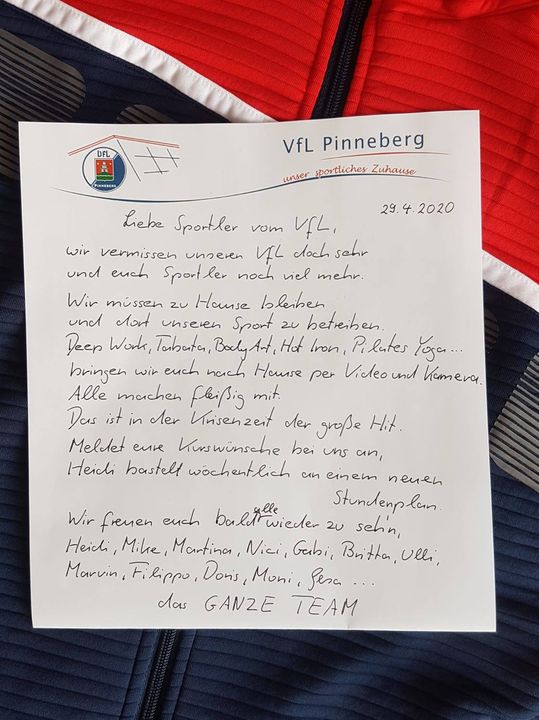 VfL
PINNEBERG
VfL Pinneberg
unser sportliches Zuhause
29.4.2020
Liebe Sportler vom VfL,
wir vermissen unseren VfL doch sehr
und euch Sportler noch viel mehr.
Wir müssen zu Hause bleiben
und dort unseren Sport zu betreiben.
Deep Work, Tabata, Body Art, Hot Iron, Pilates Yoga...
bringen wir euch nach Hause per Video und Kamera.
Alle machen fleißig mit.
Das ist in der Krisenzeit der große Hit.
Meldet eure Kurswünsche bei uns an,
Heidi bastelt wöchentlich an einem neuen
Stundenplan.
Wir freuen euch bald alle wieder zu seh'n,
Heidi, Mike, Martina, Nici, Gabi, Britta, Ulli,
Marvin, Filippo, Doris, Moni, Gesa ...
das GANZE TEAM